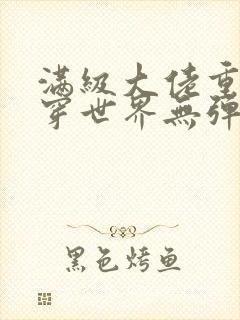 滿級大佬重
穿世界無彈
黑色烤鱼